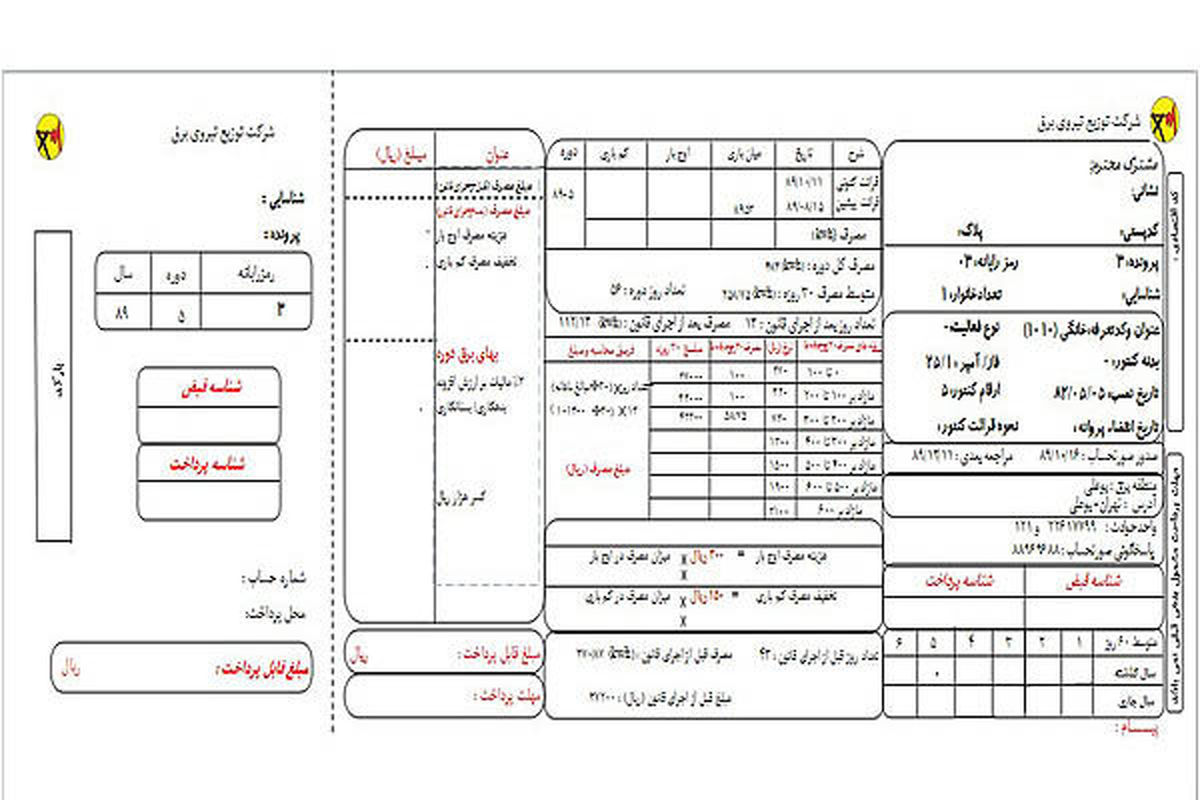 شرکت توزیع نیروی برق
مشترک محترم:
نشانی:
کدپستی: پلاک:
پرونده: ۳ رمز رایانه: ۰۳
شناسایی: تعدادخانوار: ۱
عنوان وکدتعرفه:خانگی (۱۰۱۰) نوع فعالیت:-
بدنه کنتور: - فاز/ آمپر: ۲۵/۱
تاریخ نصب: ۸۲/۰۵/۰۵ ارقام کنتور: ۵
تاریخ انقضاء پروانه: نحوه قرائت کنتور:
صدور صورتحساب: ۸۹/۱۰/۱۶ مراجعه بعدی: ۸۹/۱۲/۱۱
منطقه برق: بوعلی
آدرس: تهران-بوعلی
واحدحوادث: ۲۲۶۱۷۷۹۹ و ۱۲۱
پاسخگوئی صورتحساب: ۸۸۹۶۹۶۸۸
شناسه قبض شناسه پرداخت
متوسط ۶۰ روز ۱ ۲ ۳ ۴ ۵ ۶
سال گذشته ۰
سال جاری
پیــــام:
کد اقتصادی:
شرح تاریخ میان باری اوج بار کم باری دوره
قرائت کنونی ۸۹/۱۰/۱۱ ۸۹۰۵
قرائت پیشین ۸۹/۰۸/۱۵
مصرف (kwh)
مصرف کل دوره: (kwh)
متوسط مصرف ۳۰ روزه: (kwh) ۲۵۸/۷۵ تعداد روز دوره: ۵۶
تعداد روز بعد از اجرای قانون: ۱۳ مصرف بعد از اجرای قانون: (kwh) ۱۱۲/۱۳
نرخ (ریال) مبلغ ۳۰ روزه فرمول محاسبه و مبلغ
۰ تا ۱۰۰ ۲۷۰ ۱۰۰ ۲۷۰۰۰
مازاد بر ۱۰۰ تا ۲۰۰ ۱۰۰
مازاد بر ۲۰۰ تا ۳۰۰ ۵۸/۷۵
مازاد بر ۳۰۰ تا ۴۰۰ ۱۳۰۰
مازاد بر ۴۰۰ تا ۵۰۰ ۱۵۰۰
مازاد بر ۵۰۰ تا ۶۰۰ ۱۹۰۰
مازاد بر ۶۰۰ ۲۱۰۰
مبلغ مصرف (ریال)
هزینه مصرف اوج بار = ۳۰۰ ریال X میزان مصرف در اوج بار
X
تخفیف مصرف کم باری = ۱۵۰ ریال X میزان مصرف در کم باری
X
تعداد روز قبل از اجرای قانون: ۴۳ مصرف قبل از اجرای قانون: (kwh) ۳۷۰/۸۷
مبلغ قبل از اجرای قانون (ریال):
عنوان مبلغ (ریال)
هزینه مصرف اوج بار
تخفیف مصرف کم باری
بهای برق دوره
۳٪ مالیات بر ارزش افزوده
بدهکاری/ بستانکاری
کسر هزار ریال
مبلغ قابل پرداخت: ریال
مهلت پرداخت:
شرکت توزیع نیروی برق
شناسایی:
پرونده:
رمزرایانه دوره سال
۳ ۵ ۸۹
شناسه قبض
شناسه پرداخت
بارکد
شماره حساب:
محل پرداخت:
مبلغ قابل پرداخت: ریال